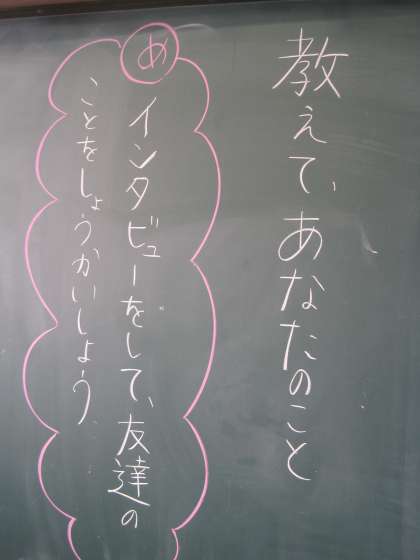 教えて、あなたのこと
め
インタビューをして、友達の
ことをしょうかいしよう